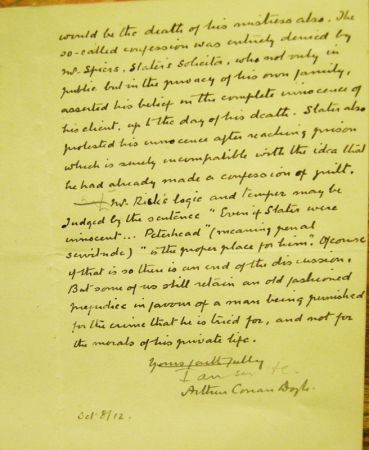 would be the death of his mistress also. The
so-called confession was entirely denied by
Mr. Spiers, Slater's Solicitor, who not only in
public but in the privacy of his own family,
asserted his belief in the complete innocence of
his client, up to the day of his death. Slater also
protested his innocence after reaching prison
which is surely incompatible with the idea that
he had already made a confession of guilt.
Mr. Rick's logic and temper may be
judged by the sentence "Even if Slater were
innocent... Peterhead" (meaning penal
servitude) "is the proper place for him". Of course
if that is so there is an end of the discussion.
But some of us still retain an old fashioned
prejudice in favour of a man being punished
for the crime that he is tried for, and not for
the morals of his private life.
Yours faithfully
I am Sir etc.
Arthur Conan Doyle.
Oct 8/12.